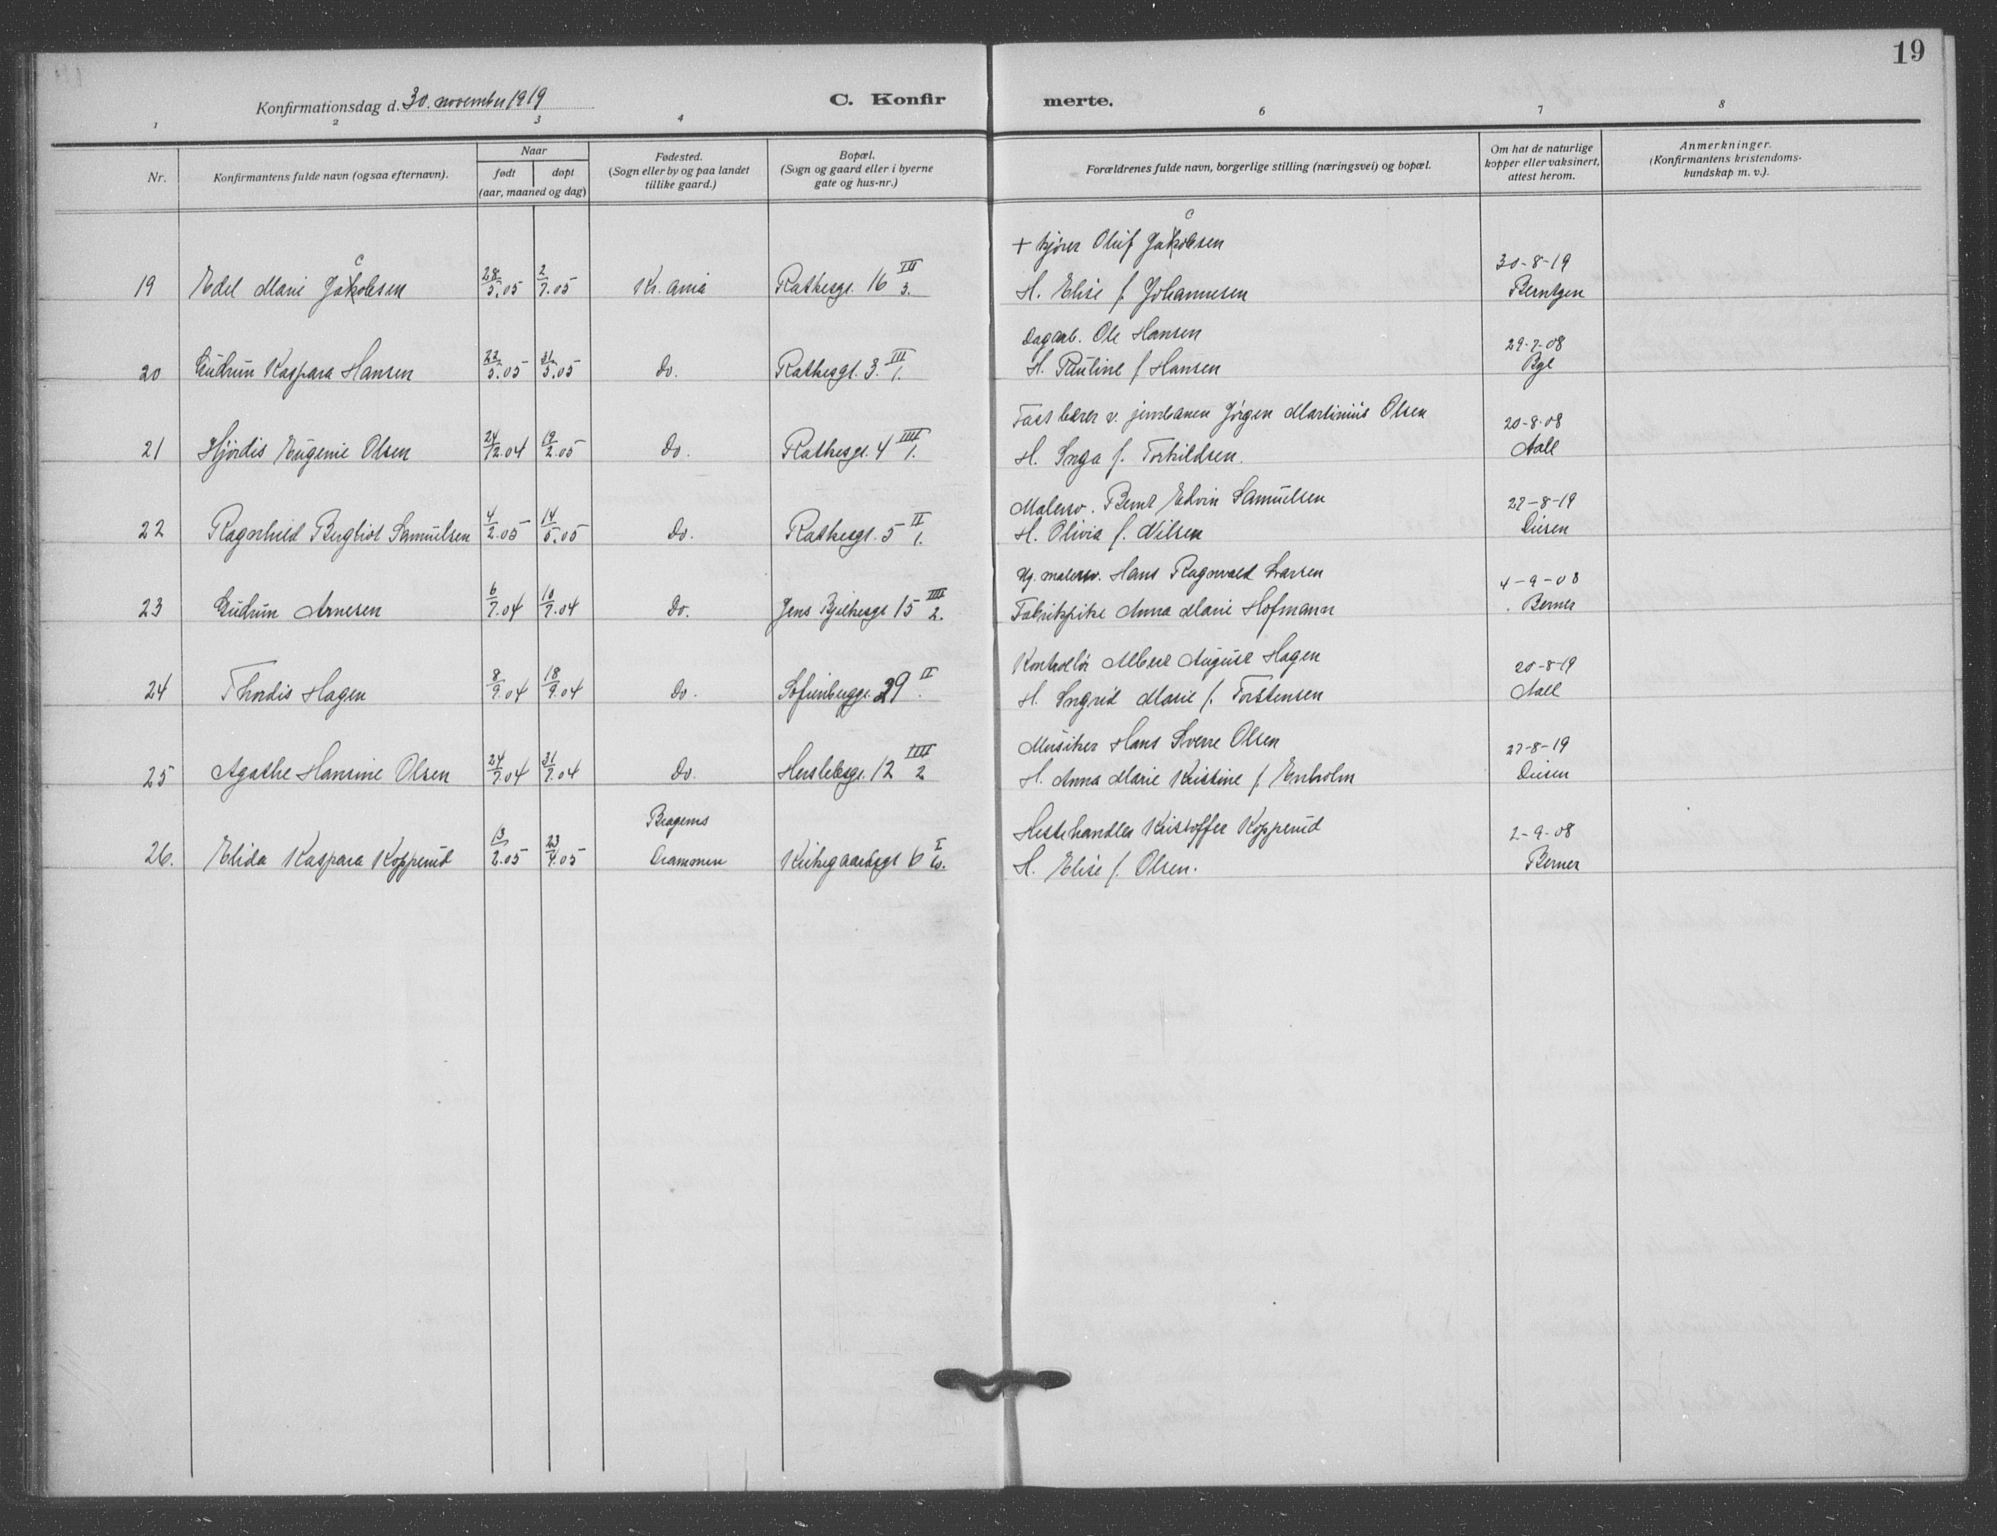 19
Konfirmationsdag d. 30. november 1919
C. Konfir merte.
1 2 3 4 6 7 8
Nr.
Konfirmantens fulde navn (ogsaa efternavn).
Naar
født døpt
(aar, maaned og dag)
Fødested.
(Sogn eller by og paa landet
tillike gaard.)
Bopæl.
(Sogn og gaard eller i byerne
gate og hus-nr.)
Forældrenes fulde navn, borgerlige stilling (næringsvei) og bopæl.
Om hat de naturlige
kopper eller vaksinert,
attest herom.
Anmerkninger.
(Konfirmantens kristendoms-
kundskap m. v.).
+ kjører Oluf Jacobsen
19 Edel Marie Jacobsen 28/5.05 2/7.05 Kr.ania Rathesgt. 16 III 3. H. Elise f. Johannesen 30-8-19 Berntzen
Dagarb. Ole Hansen
20 Gudrun Kaspara Hansen 22/5.05 31/5.05 Do. Rathesgt. 3. III 1. H. Pauline f. Hansen 29-7-08
Fast bærer v. jernbanen Jørgen Martinius Olsen
21 Hjørdis Eugenie Olsen 24/12.04 19/2.05 Do. Rathesgt. 4 IIII 1. H. Inga f. Torkildsen. 20-8-08 Aall
Malersv. Bernt Edvin Samuelsen
22 Ragnhild Bergliot Samuelsen 4/2.05 14/5.05 Do. Rathesgt. 5 II 1. H. Olivia f. Nilsen 27-8-19 Diesen
Ug. malersv. Hans Ragnvald Larsen
23 Gudrun Arnesen 6/7.04 10/7.04 Do. Jens Bjelkesgt 15 III 2. Fabrikpike Anna Marie Hofmann 4-9-08 Berner
Kontrollør Albert August Hagen
24 Thordis Hagen 8/9.04 18/9.04 Do. Sofienberggt. 29 II H. Ingrid Marie f. Torstensen 20-8-19 Aall
Musiker Hans Sverre Olsen
25 Agathe Hansine Olsen 24/7.04 31/7.04 Do. Herslebsgt. 12 IIII 2 H. Anna Marie Kristine f. Enholm 27-8-19 Diesen
Bragernes
Hestehandler Kristoffer Kopperud
26. Elida Kaspara Kopperud 13/2.05 23/4.05 Drammen Kirkegaardsgt 6 I H. Elise f. Olsen. 2-9-08 Berner